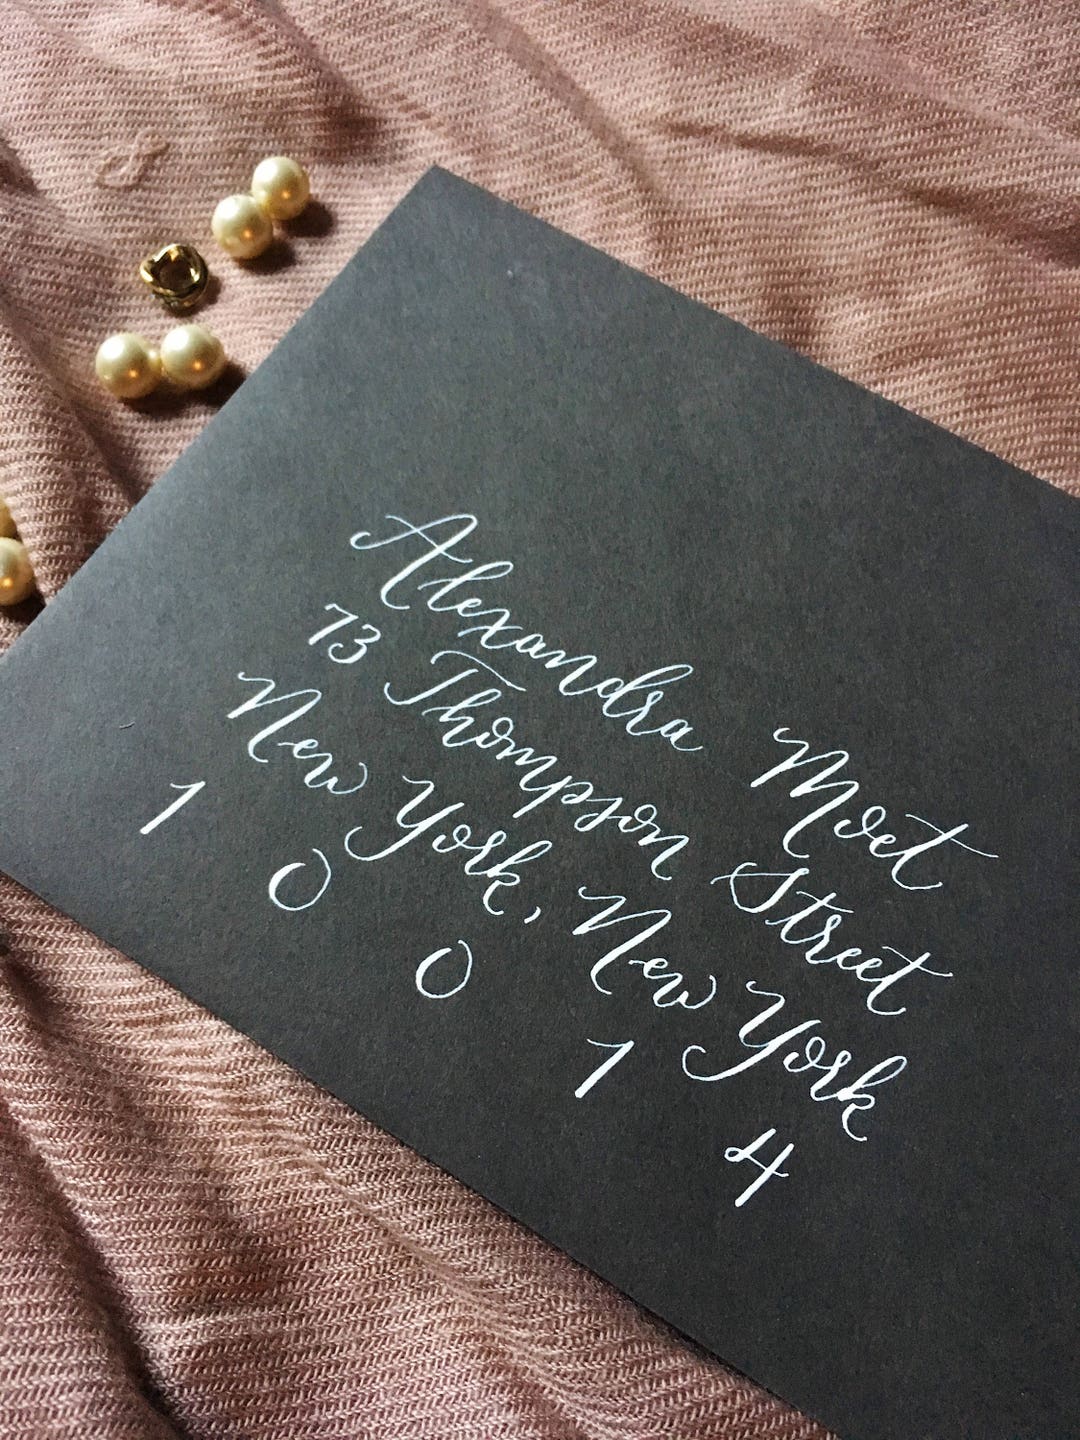 Alexandra Moet
73 Thompson Street
New York, New York
1 0 0 1 4